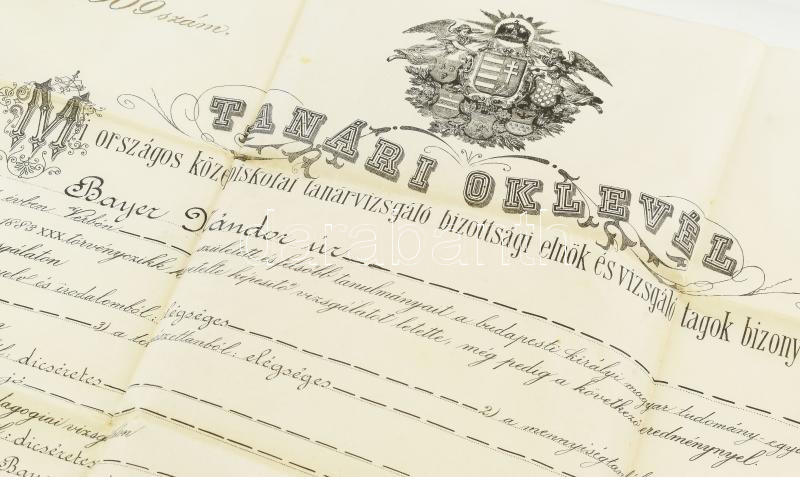 909 szám.
TANÁRI OKLEVÉL
Mi országos középiskolai tanárvizsgáló bizottsági elnök és vizsgáló tagok bizony
Bayer Sándor úr
évben Verbón született és fősőbb tanulmányait a budapesti királyi magyar tudomány-egye
1883 XXX. törvényczikk képesítő vizsgálatot letette, még pedig a következő eredménynyel:
és irodalomból: elégséges
2) a mennyiségtan
3) a elégséges
dicséretes
jó
dagogiai vizsgálat
dicséretes
Bayer
darabanth